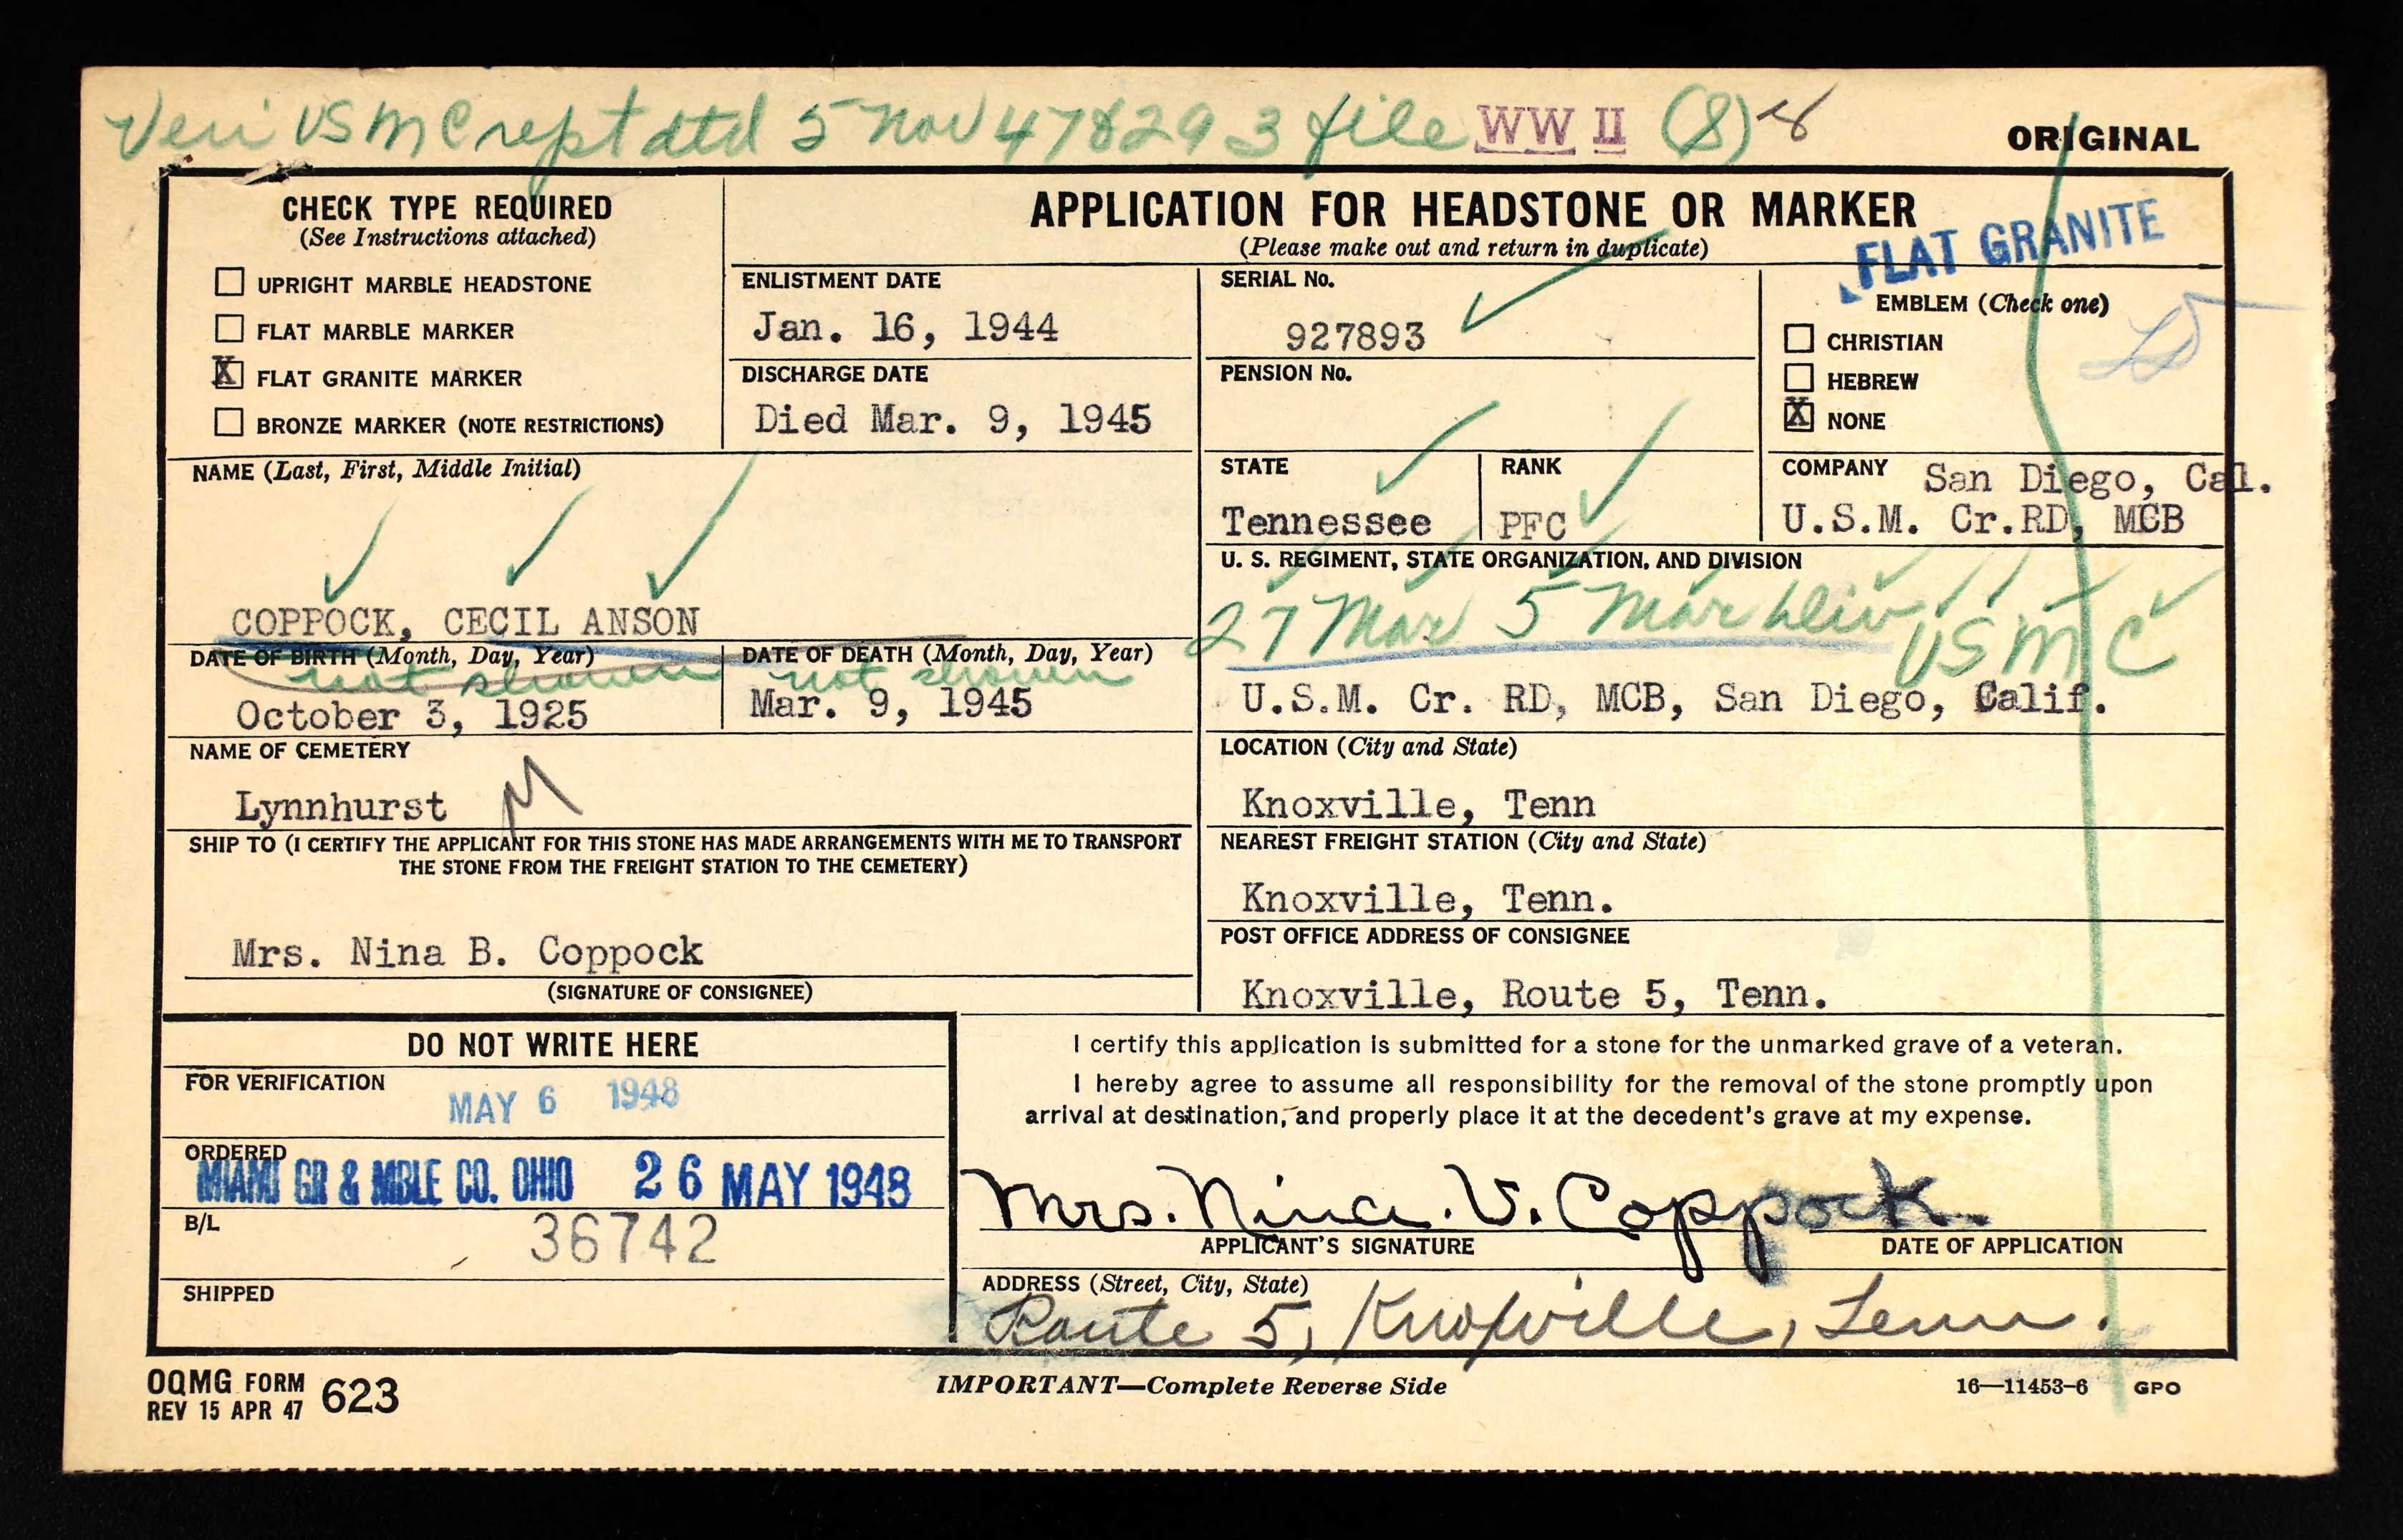 Veri USMC rept dtd 5 Nov 47 8293 file WW II (8)
ORIGINAL
CHECK TYPE REQUIRED
(See Instructions attached)
☐ UPRIGHT MARBLE HEADSTONE
☐ FLAT MARBLE MARKER
☒ FLAT GRANITE MARKER
☐ BRONZE MARKER (NOTE RESTRICTIONS)
APPLICATION FOR HEADSTONE OR MARKER
(Please make out and return in duplicate)
FLAT GRANITE
ENLISTMENT DATE
Jan. 16, 1944
DISCHARGE DATE
Died Mar. 9, 1945
SERIAL No.
927893
PENSION No.
EMBLEM (Check one)
☐ CHRISTIAN
☐ HEBREW
☒ NONE
NAME (Last, First, Middle Initial)
COPPOCK, CECIL ANSON
STATE
Tennessee
RANK
PFC
COMPANY San Diego, Cal.
U.S.M. Cr.RD, MCB
U. S. REGIMENT, STATE ORGANIZATION, AND DIVISION
27 Mar 5 Mar Div USMC
U.S.M. Cr. RD, MCB, San Diego, Calif.
DATE OF BIRTH (Month, Day, Year)
not shown
October 3, 1925
DATE OF DEATH (Month, Day, Year)
not shown
Mar. 9, 1945
NAME OF CEMETERY
Lynnhurst M
LOCATION (City and State)
Knoxville, Tenn
SHIP TO (I CERTIFY THE APPLICANT FOR THIS STONE HAS MADE ARRANGEMENTS WITH ME TO TRANSPORT
THE STONE FROM THE FREIGHT STATION TO THE CEMETERY)
Mrs. Nina B. Coppock
(SIGNATURE OF CONSIGNEE)
NEAREST FREIGHT STATION (City and State)
Knoxville, Tenn.
POST OFFICE ADDRESS OF CONSIGNEE
Knoxville, Route 5, Tenn.
DO NOT WRITE HERE
FOR VERIFICATION
MAY 6 1948
ORDERED
MIAMI GR & MBLE CO. OHIO 26 MAY 1948
B/L
36742
SHIPPED
I certify this application is submitted for a stone for the unmarked grave of a veteran.
I hereby agree to assume all responsibility for the removal of the stone promptly upon
arrival at destination, and properly place it at the decedent's grave at my expense.
Mrs. Nina. V. Coppock
APPLICANT'S SIGNATURE
DATE OF APPLICATION
ADDRESS (Street, City, State)
Route 5, Knoxville, Tenn.
OQMG FORM 623
REV 15 APR 47
IMPORTANT—Complete Reverse Side
16—11453-6 GPO